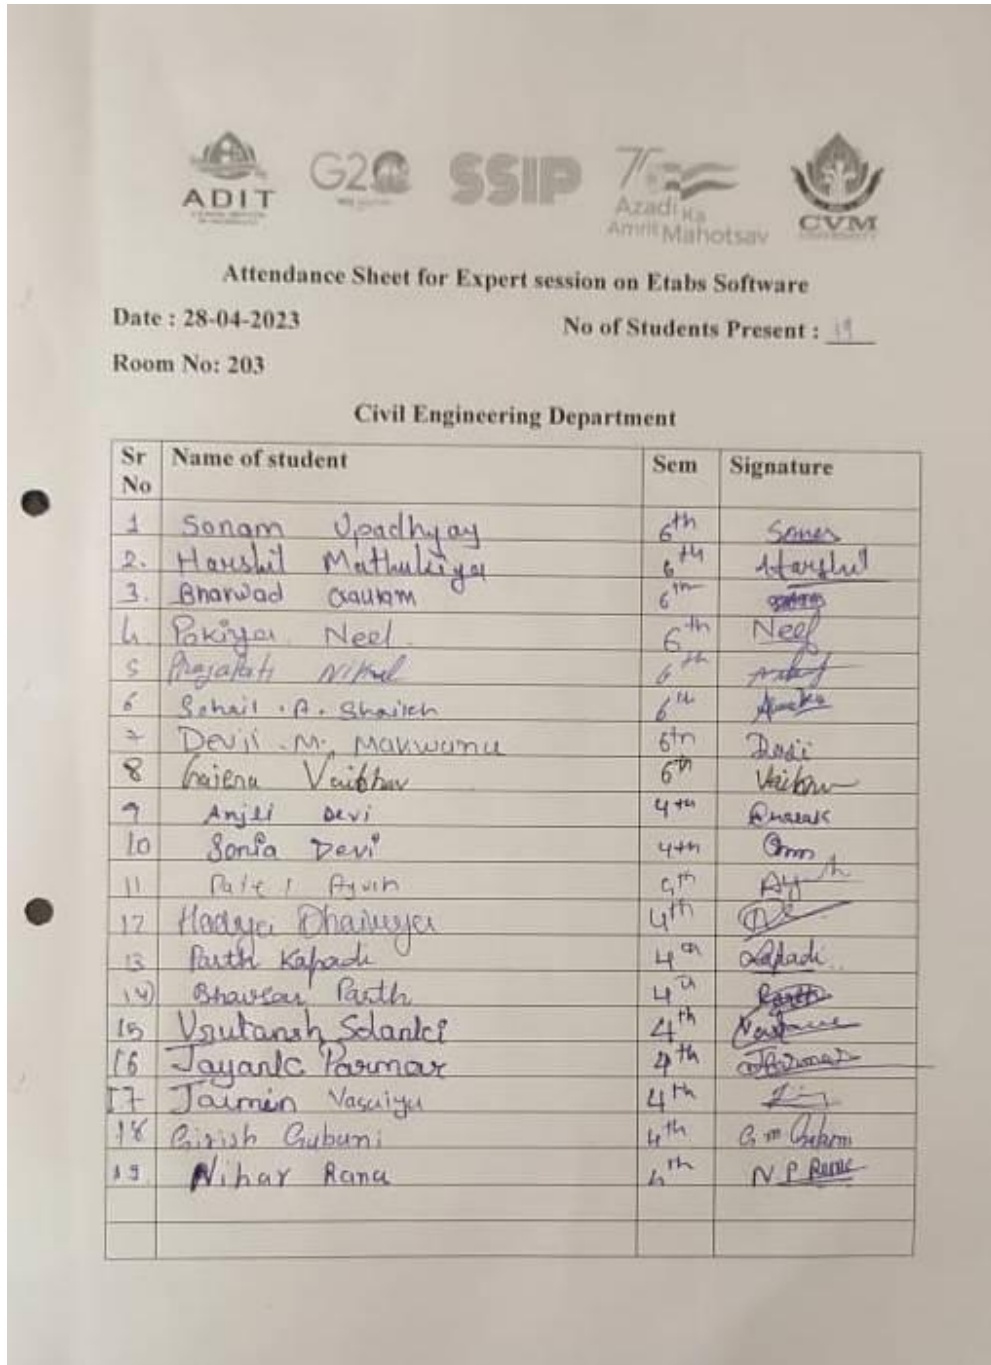 ADIT
G20
SSIP
75
Azadi Ka
Amrit Mahotsav
CVM
UNIVERSITY
Attendance Sheet for Expert session on Etabs Software
Date : 28-04-2023
No of Students Present : 19
Room No: 203
Civil Engineering Department
Sr No Name of student Sem Signature
1 Sonam Upadhyay 6th Sonam
2. Harshil Mathukiya 6th Harshil
3. Bharwad Gautam 6th
4 Pokiya Neel 6th Neel
5 Prajapati Nikul 6th
6 Sohail . A. Shaikh 6th
7 Devji .M. Makwana 6th
8 Gajera Vaibhav 6th Vaibhav
9 Anjli Devi 4th
10 Sonia Devi 4th
11 Patel Ayush 4th
12 Hadiya 4th
13 Parth Kapadi 4th Kapadi
14) Bhavsar Parth 4th Parth
15 Vrutansh Solanki 4th
16 Jayank Parmar 4th Parmar
17 Jaimin Vasaiya 4th
18 Girish Gubani 4th
19 Nihar Rana 4th N P Rana